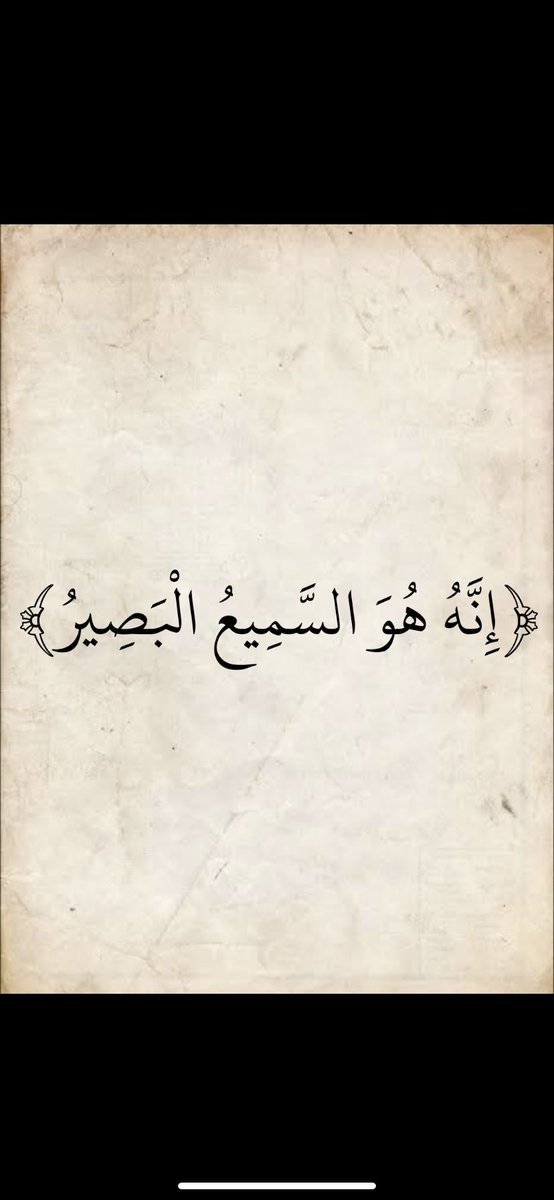 ﴿إِنَّهُ هُوَ السَّمِيعُ الْبَصِيرُ﴾